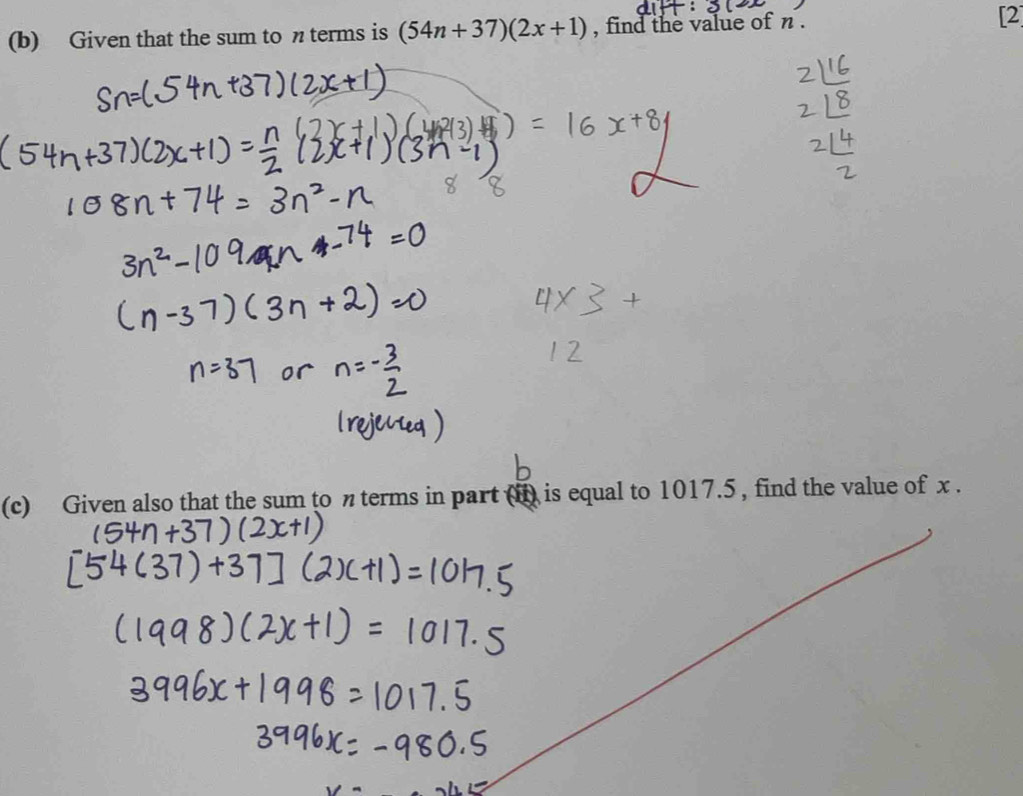 diff: 3(2x
(b) Given that the sum to n terms is (54n+37)(2x+1), find the value of n. [2
Sn=(54n+37)(2x+1)
(54n+37)(2x+1) = n/2 (2x+1)(3n-1) = 16x+8
8 8
108n+74 = 3n²-n
3n²-109n-74 =0
(n-37)(3n+2)=0
n=37 or n=-3/2
(rejected)
2 16
2 8
2 4
2
4×3 +
12
b
(c) Given also that the sum to n terms in part is equal to 1017.5, find the value of x.
(54n+37)(2x+1)
[54(37)+37] (2x+1)=1017.5
(1998)(2x+1) = 1017.5
3996x+1998 = 1017.5
3996x= -980.5
x =